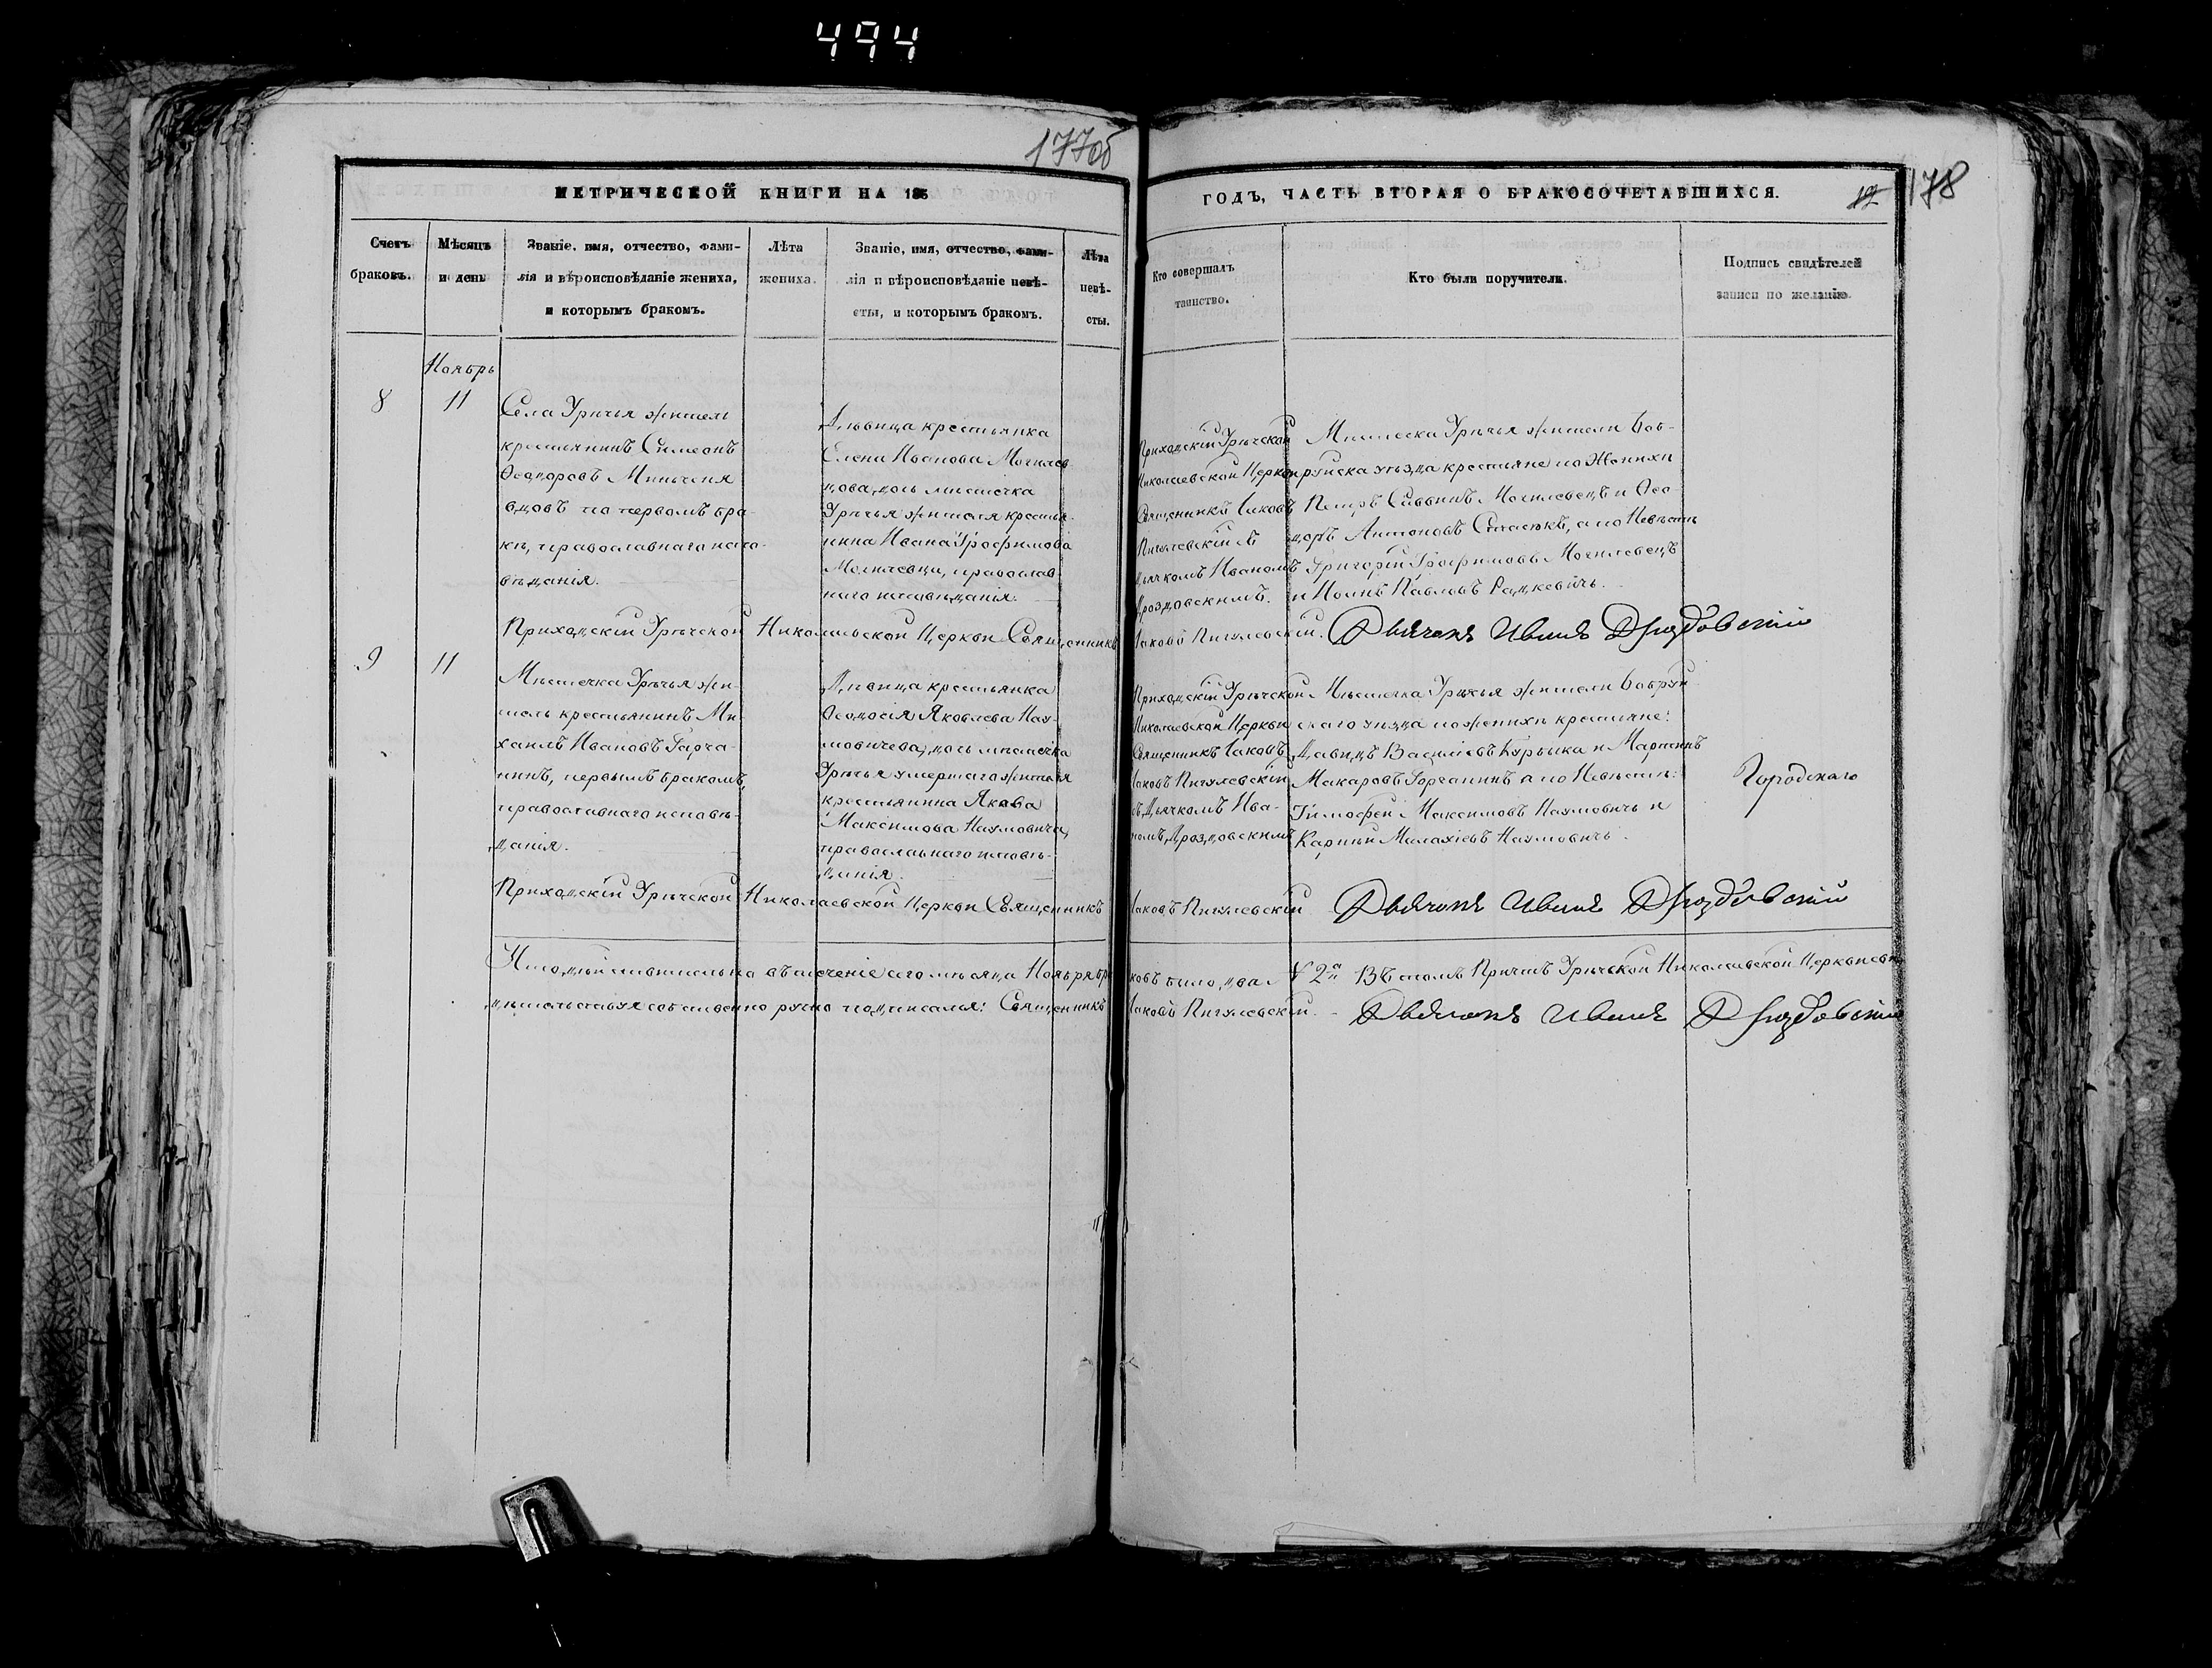 494
177об
МЕТРИЧЕСКОЙ КНИГИ НА 186
ГОДЪ, ЧАСТЬ ВТОРАЯ О БРАКОСОЧЕТАВШИХСЯ.
12
178
Счетъ
браковъ.
Мѣсяцъ
и день
Званіе, имя, отчество, фами-
лія и вѣроисповѣданіе жениха,
и которымъ бракомъ.
Лѣта
жениха.
Званіе, имя, отчество, фами-
лія и вѣроисповѣданіе невѣ-
сты, и которымъ бракомъ.
Лѣта
невѣ-
сты.
Кто совершалъ
таинство.
Кто были поручители.
Подпись свидѣтелей
записи по желанію.
Ноябрь
8
11
Села Урѣчья житель
крестьянинъ Симеонъ
Ѳеодоровъ Миньченя
вдовъ по первомъ бра-
кѣ, православнаго испо-
вѣданія.
Дѣвица крестьянка
Елена Иванова Могилев
цова, дочь мѣстечка
Урѣчья жителя крестья-
нина Ивана Трофимова
Могилевца, православ-
наго исповѣданія.
Приходскій Урѣчской
Николаевской Церкви
Священникъ Іаковъ
Пигулевскій съ
Дьячкомъ Иваномъ
Дроздовскимъ.
Мѣстечка Урѣчья жители Боб-
руйска уѣзда крестьяне по Женихѣ
Петръ Саввинъ Могилевецъ и Ѳео-
доръ Антоновъ Стасюкъ, а по Невѣстѣ
Григорій Трофимовъ Могилевецъ
и Іоаннъ Павловъ Радкевичъ.
Приходскій Урѣчской Николаевской Церкви Священникъ Іаковъ Пигулевскій. Дьячокъ Иванъ Дроздовскій
9
11
Мѣстечка Урѣчья жи-
тель крестьянинъ Ми-
хаилъ Ивановъ Гарча-
нинъ, первымъ бракомъ,
православнаго исповѣ-
данія.
Дѣвица крестьянка
Ѳеодосія Яковлева Нау-
мовичева, дочь мѣстечка
Урѣчья умершаго жителя
крестьянина Якова
Максимова Наумовича,
православнаго исповѣ-
данія.
Приходскій Урѣчской
Николаевской Церкви
Священникъ Іаковъ
Іаковъ Пигулевскій
съ Дьячкомъ Ива-
номъ Дроздовскимъ
Мѣстечка Урѣчья жители Бобруй
скаго уѣзда по женихѣ крестьяне:
Давидъ Василіевъ Курьяка и Мартинъ
Макаровъ Горчанинъ а по Невѣстѣ:
Тимофей Максимовъ Наумовичъ и
Карпъ Малахіевъ Наумовичъ.
Городскаго
Приходскій Урѣчской Николаевской Церкви Священникъ Іаковъ Пигулевскій Дьячокъ Иванъ Дроздовскій
Итого, дѣйствительно въ теченіе сего мѣсяца Ноября бра ковъ было два. № 2й Въ томъ Причтъ Урѣчской Николаевской Церкви сви
дѣтельствуя собственно ручно подписался: Священникъ Іаковъ Пигулевскій. Дьячокъ Иванъ Дроздовскій